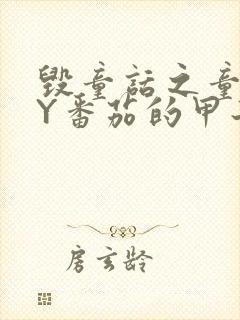 毁童话之童
Y番茄的甲
房玄龄